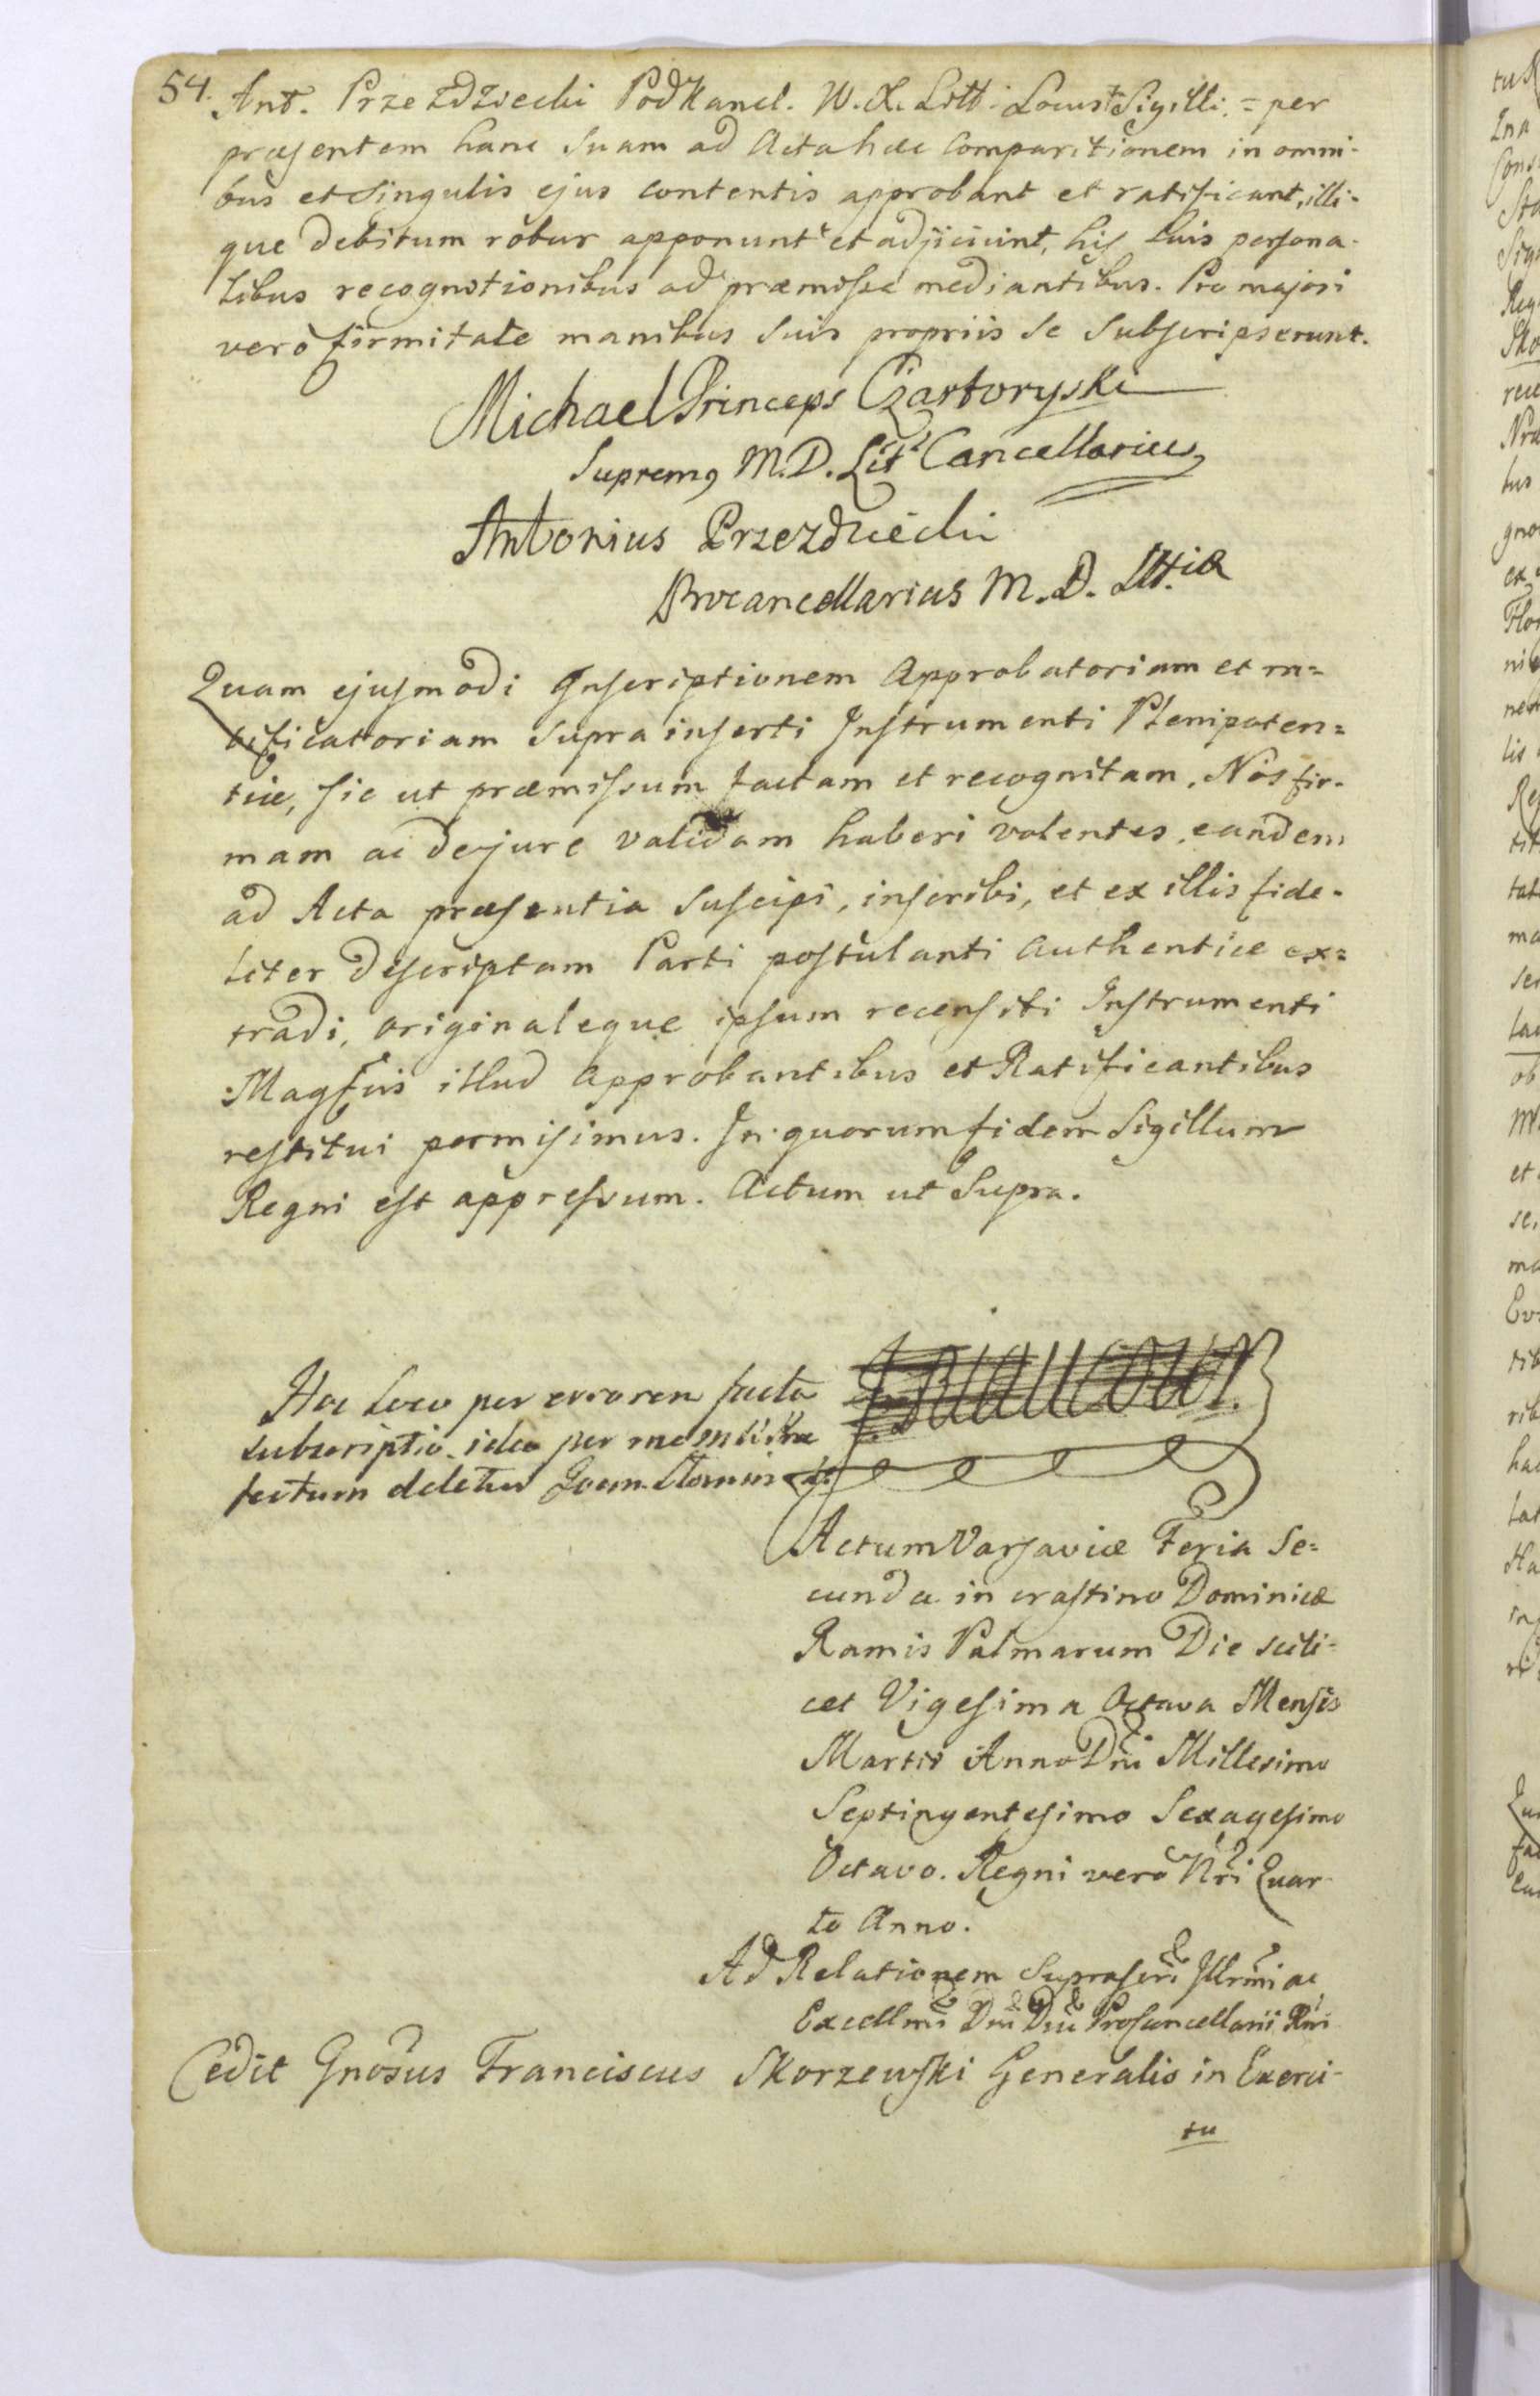 54. Ant. Przezdziecki PodKancl. W. X. Litt. Locus + Sigilli. = per
præsentem hanc Suam ad Acta hæc Comparitionem in omni-
bus et Singulis ejus contentis approbant et ratificant, illi-
que debitum robur apponunt et adjiciunt, his Suis persona-
libus recognitionibus ad præmissa mediantibus. Pro majori
verò firmitate manibus Suis propriis Se Subscripserunt.
Michael Princeps Czartoryski
Supremg M.D. Lit. Cancellarius
Antonius Przezdziecki
Procancellarius M.D. Litt.iæ
Quam ejusmodi Inscriptionem Approbatoriam et ra=
tificatoriam Supra inserti Instrumenti Plenipoten=
tiæ, sic ut præmissum factam et recognitam, Nos fir-
mam ac de jure validam haberi volentes, eandem
ad Acta præsentia Suscipi, inscribi, et ex illis fide-
liter descriptam Parti postulanti authentice ex=
tradi, originaleque ipsum recensiti Instrumenti
Magfcis illud approbantibus et Ratificantibus
restitui permisimus. In quorum fidem Sigillum
Regni est appressum. Actum ut Supra.
Hoc loco per errorem facta
subscriptio, ideo per me
deletur
Actum Varsaviæ Feria Se=
cunda in crastino Dominicæ
Ramis Palmarum Die scili-
cet Vigesima Octava Mensis
Martii Anno Dni Millesimo
Septingentesimo Sexagesimo
Octavo. Regni verò Nri Quar-
to Anno.
Ad Relationem Suprascri Illrmi ac
Excellmi Dni Dni Procancellarii Rni
Cedit Gnosus Franciscus Skorzewski Generalis in Exerci-
tu